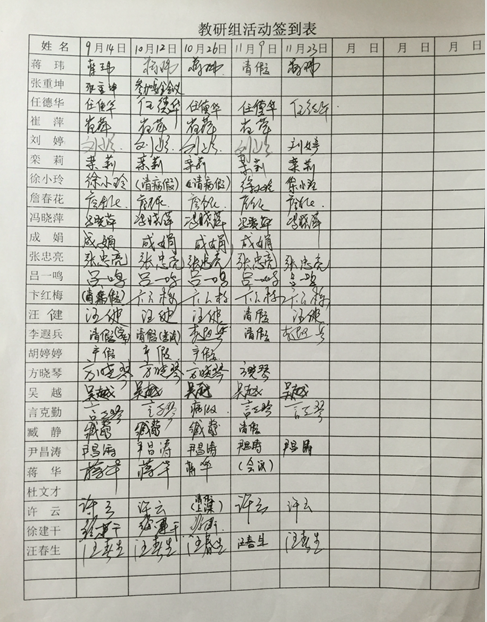 教研组活动签到表
姓名 9月14日 10月12日 10月26日 11月9日 11月23日 月 日 月 日 月 日 月 日
蒋玮 蒋玮 蒋玮 蒋玮 请假 蒋玮
张重坤 张重坤 参加会议
任德华 任德华 任德华 任德华 任德华 任德华
崔萍 崔萍 崔萍 崔萍 崔萍
刘婷 刘婷 刘婷 刘婷 刘婷 刘婷
栾莉 栾莉 栾莉 栾莉 栾莉 栾莉
徐小玲 徐小玲 (请病假) (请病假) 徐小玲 徐小玲
詹春花 詹春花 詹春花 詹春花 詹春花 詹春花
冯晓萍 冯晓萍 冯晓萍 冯晓萍 冯晓萍 冯晓萍
成娟 成娟 成娟 成娟 成娟
张忠亮 张忠亮 张忠亮 张忠亮 张忠亮 张忠亮
吕一鸣 吕一鸣 吕一鸣 吕一鸣 吕一鸣 吕一鸣
卞红梅 (请病假) 卞红梅 卞红梅 卞红梅 卞红梅
汪健 汪健 汪健 汪健 请假 汪健
李遐兵 请假 请假 李遐兵 请假 李遐兵
胡婷婷 产假 产假 产假
方晓琴 方晓琴 方晓琴 方晓琴 方晓琴
吴越 吴越 吴越 吴越 吴越 吴越
言克勤 病假
臧静 臧静 臧静 臧静 请假
尹昌涛 尹昌涛 尹昌涛 尹昌涛 尹昌涛 尹昌涛
蒋华 蒋华 蒋华 蒋华 (会议)
杜文才
许云 许云 许云 许云 许云
徐建干 徐建干 徐建干
汪春生 汪春生 汪春生 汪春生 汪春生 汪春生